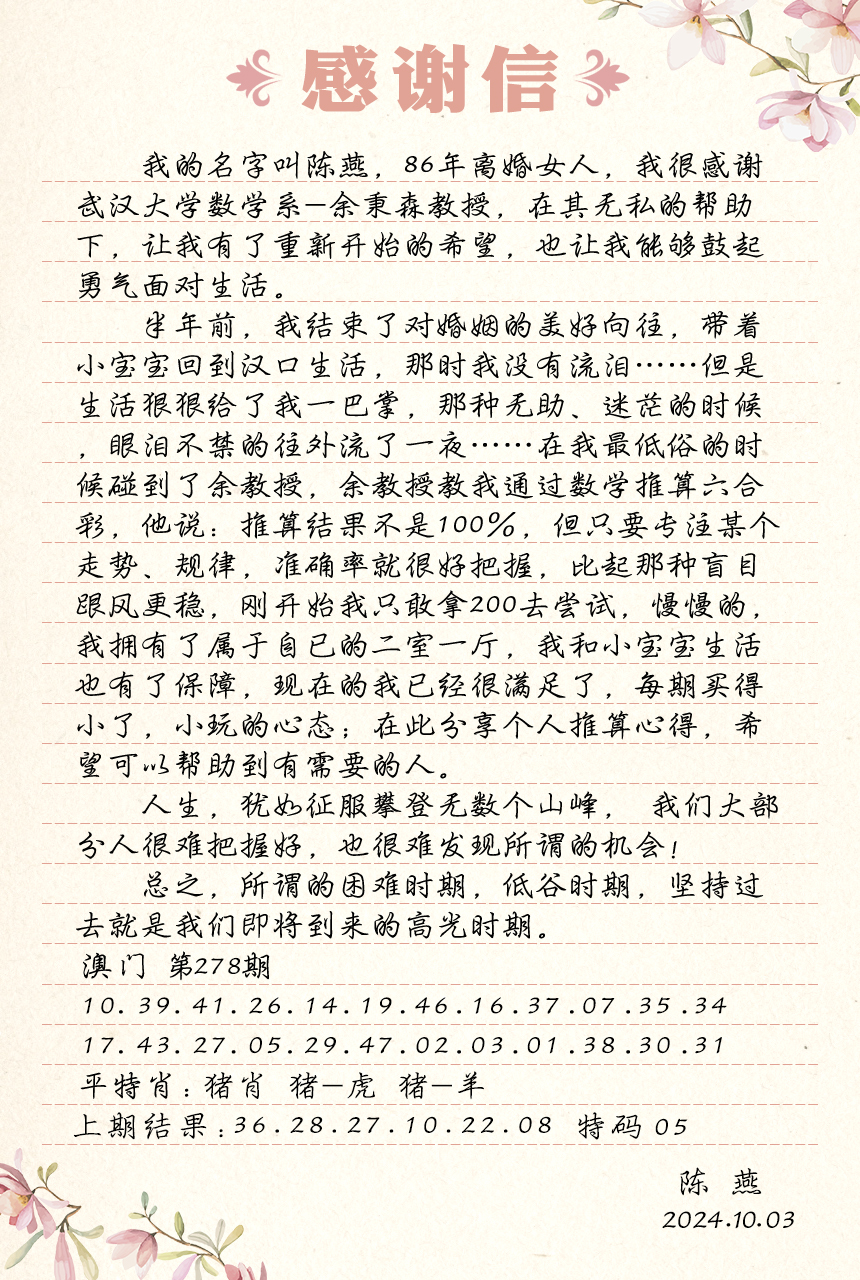 感谢信
我的名字叫陈燕，86年离婚女人，我很感谢
武汉大学数学系—余秉森教授，在其无私的帮助
下，让我有了重新开始的希望，也让我能够鼓起
勇气面对生活。
半年前，我结束了对婚姻的美好向往，带着
小宝宝回到汉口生活，那时我没有流泪……但是
生活狠狠给了我一巴掌，那种无助、迷茫的时候
，眼泪不禁的往外流了一夜……在我最低俗的时
候碰到了余教授，余教授教我通过数学推算六合
彩，他说：推算结果不是100%，但只要专注某个
走势、规律，准确率就很好把握，比起那种盲目
跟风更稳，刚开始我只敢拿200去尝试，慢慢的，
我拥有了属于自已的二室一厅，我和小宝宝生活
也有了保障，现在的我已经很满足了，每期买得
小了，小玩的心态；在此分享个人推算心得，希
望可以帮助到有需要的人。
人生，犹如征服攀登无数个山峰， 我们大部
分人很难把握好，也很难发现所谓的机会！
总之，所谓的困难时期，低谷时期，坚持过
去就是我们即将到来的高光时期。
澳门 第278期
10.39.41.26.14.19.46.16.37.07.35.34
17.43.27.05.29.47.02.03.01.38.30.31
平特肖：猪肖 猪—虎 猪—羊
上期结果：36.28.27.10.22.08 特码 05
陈 燕
2024.10.03